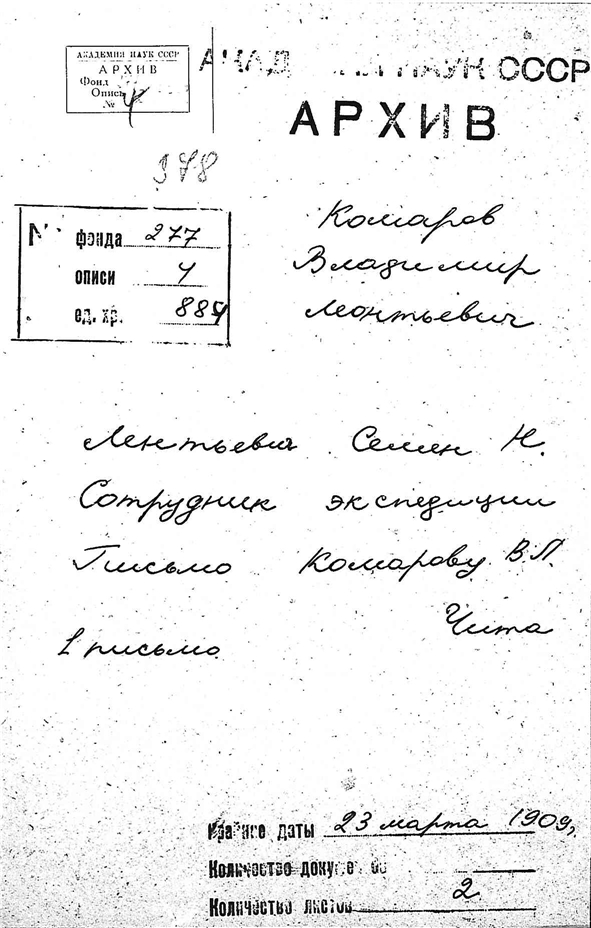 АКАДЕМИЯ НАУК СССР
АРХИВ
Фонд
Опись 4
№
АКАДЕМИЯ НАУК СССР
АРХИВ
378
№ фонда 277
описи 4
ед. хр. 884
Комаров
Владимир
Леонтьевич
Леонтьевич Семен Н.
Сотрудник экспедиции
Письмо Комарову В.Л.
Чита
1 письмо
Крайние даты 23 марта 1909,
Количество документов
Количество листов 2